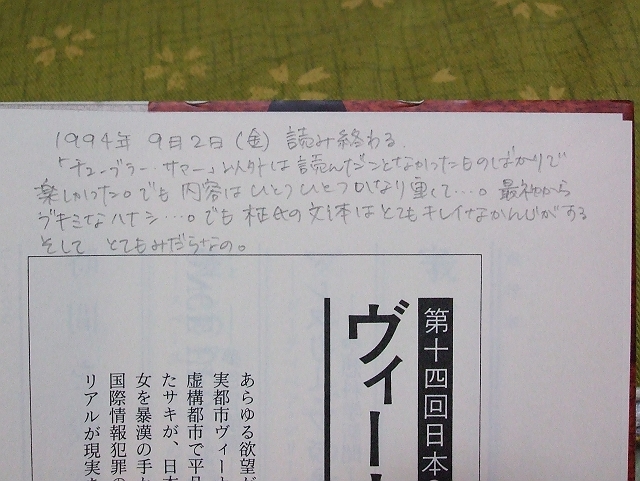 1994年 9月2日(金) 読み終わる.
「チューブラー・サマー」以外は読んだことなかったものばかりで
楽しかった。でも 内容はひとつひとつかなり重くて…。最初から
ブキミなハナシ…。でも 柾氏の文体はとてもキレイなかんじがする
そして とてもみだらなの。
第十四回日本
ヴィー
あらゆる欲望が
実都市ヴィー
虚構都市で平凡
たサキが、日本
女を暴漢の手か
国際情報犯罪の
リアルが現実